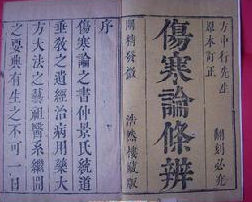 方中行先生
原本訂正 翻刻必究
傷寒論條辨
精發微 浩然樓藏版
序
傷寒論之書仲景氏統道
垂教之遺經治病用藥大
方大法之藝祖醫系繼開
之要典有生之不可一日